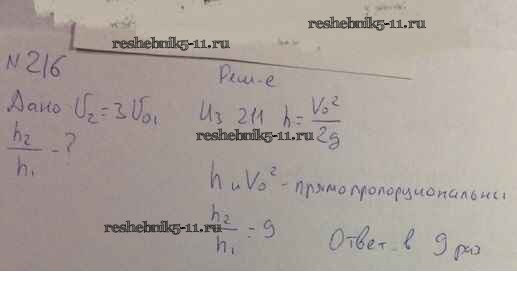 reshebnik5-11.ru
reshebnik5-11.ru
N 216
Реш-е
Дано V₂ = 3V₀₁
Из 211 h = V₀²/2g
h₂/h₁ - ?
reshebnik5-11.ru
h и V₀² - прямопропорциональны
reshebnik5-11.ru
h₂/h₁ = 9
Ответ: в 9 раз